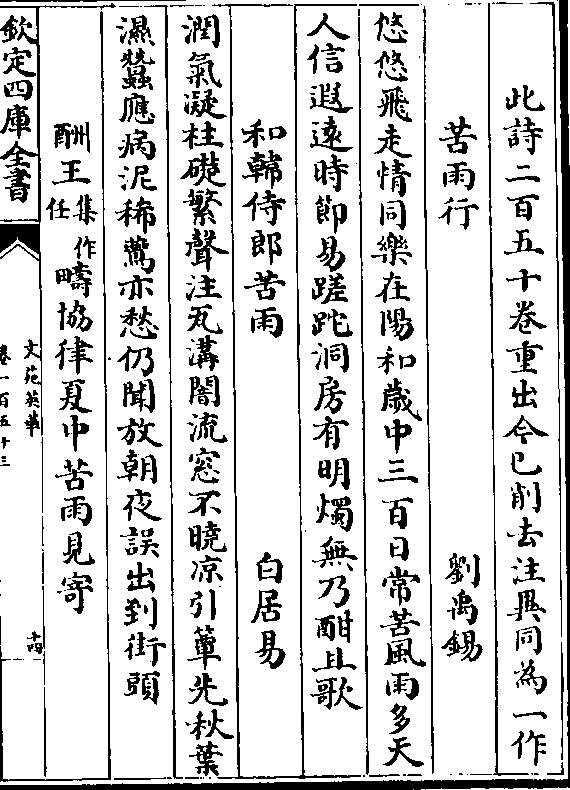 此詩二百五十卷重出今已削去注異同為一作
苦雨行　劉禹錫
悠悠飛走情同樂在陽和歲中三百日常苦風雨多天
人信遐遠時節易蹉跎洞房有明燭無乃酣且歌
和韓侍郎苦雨　白居易
潤氣凝柱礎繁聲注瓦溝闇流窓不曉凉引簟先秋葉
濕蠶應病泥稀鷰亦愁仍聞放朝夜誤出到街頭
酬王集作任疇協律夏中苦雨見寄
欽定四庫全書
文苑英華
卷一百五十三
十四